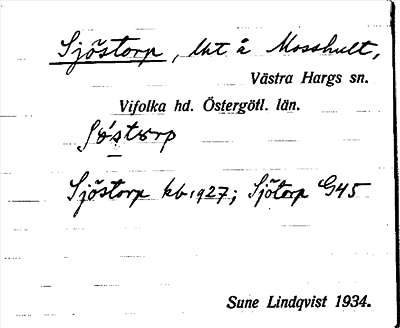 Sjöstorp, lht å Mosshult,
Västra Hargs sn.
Vifolka hd. Östergötl. län.
Sớstorp
Sjöstorp kb 1927; Sjötorp G45
Sune Lindqvist 1934.